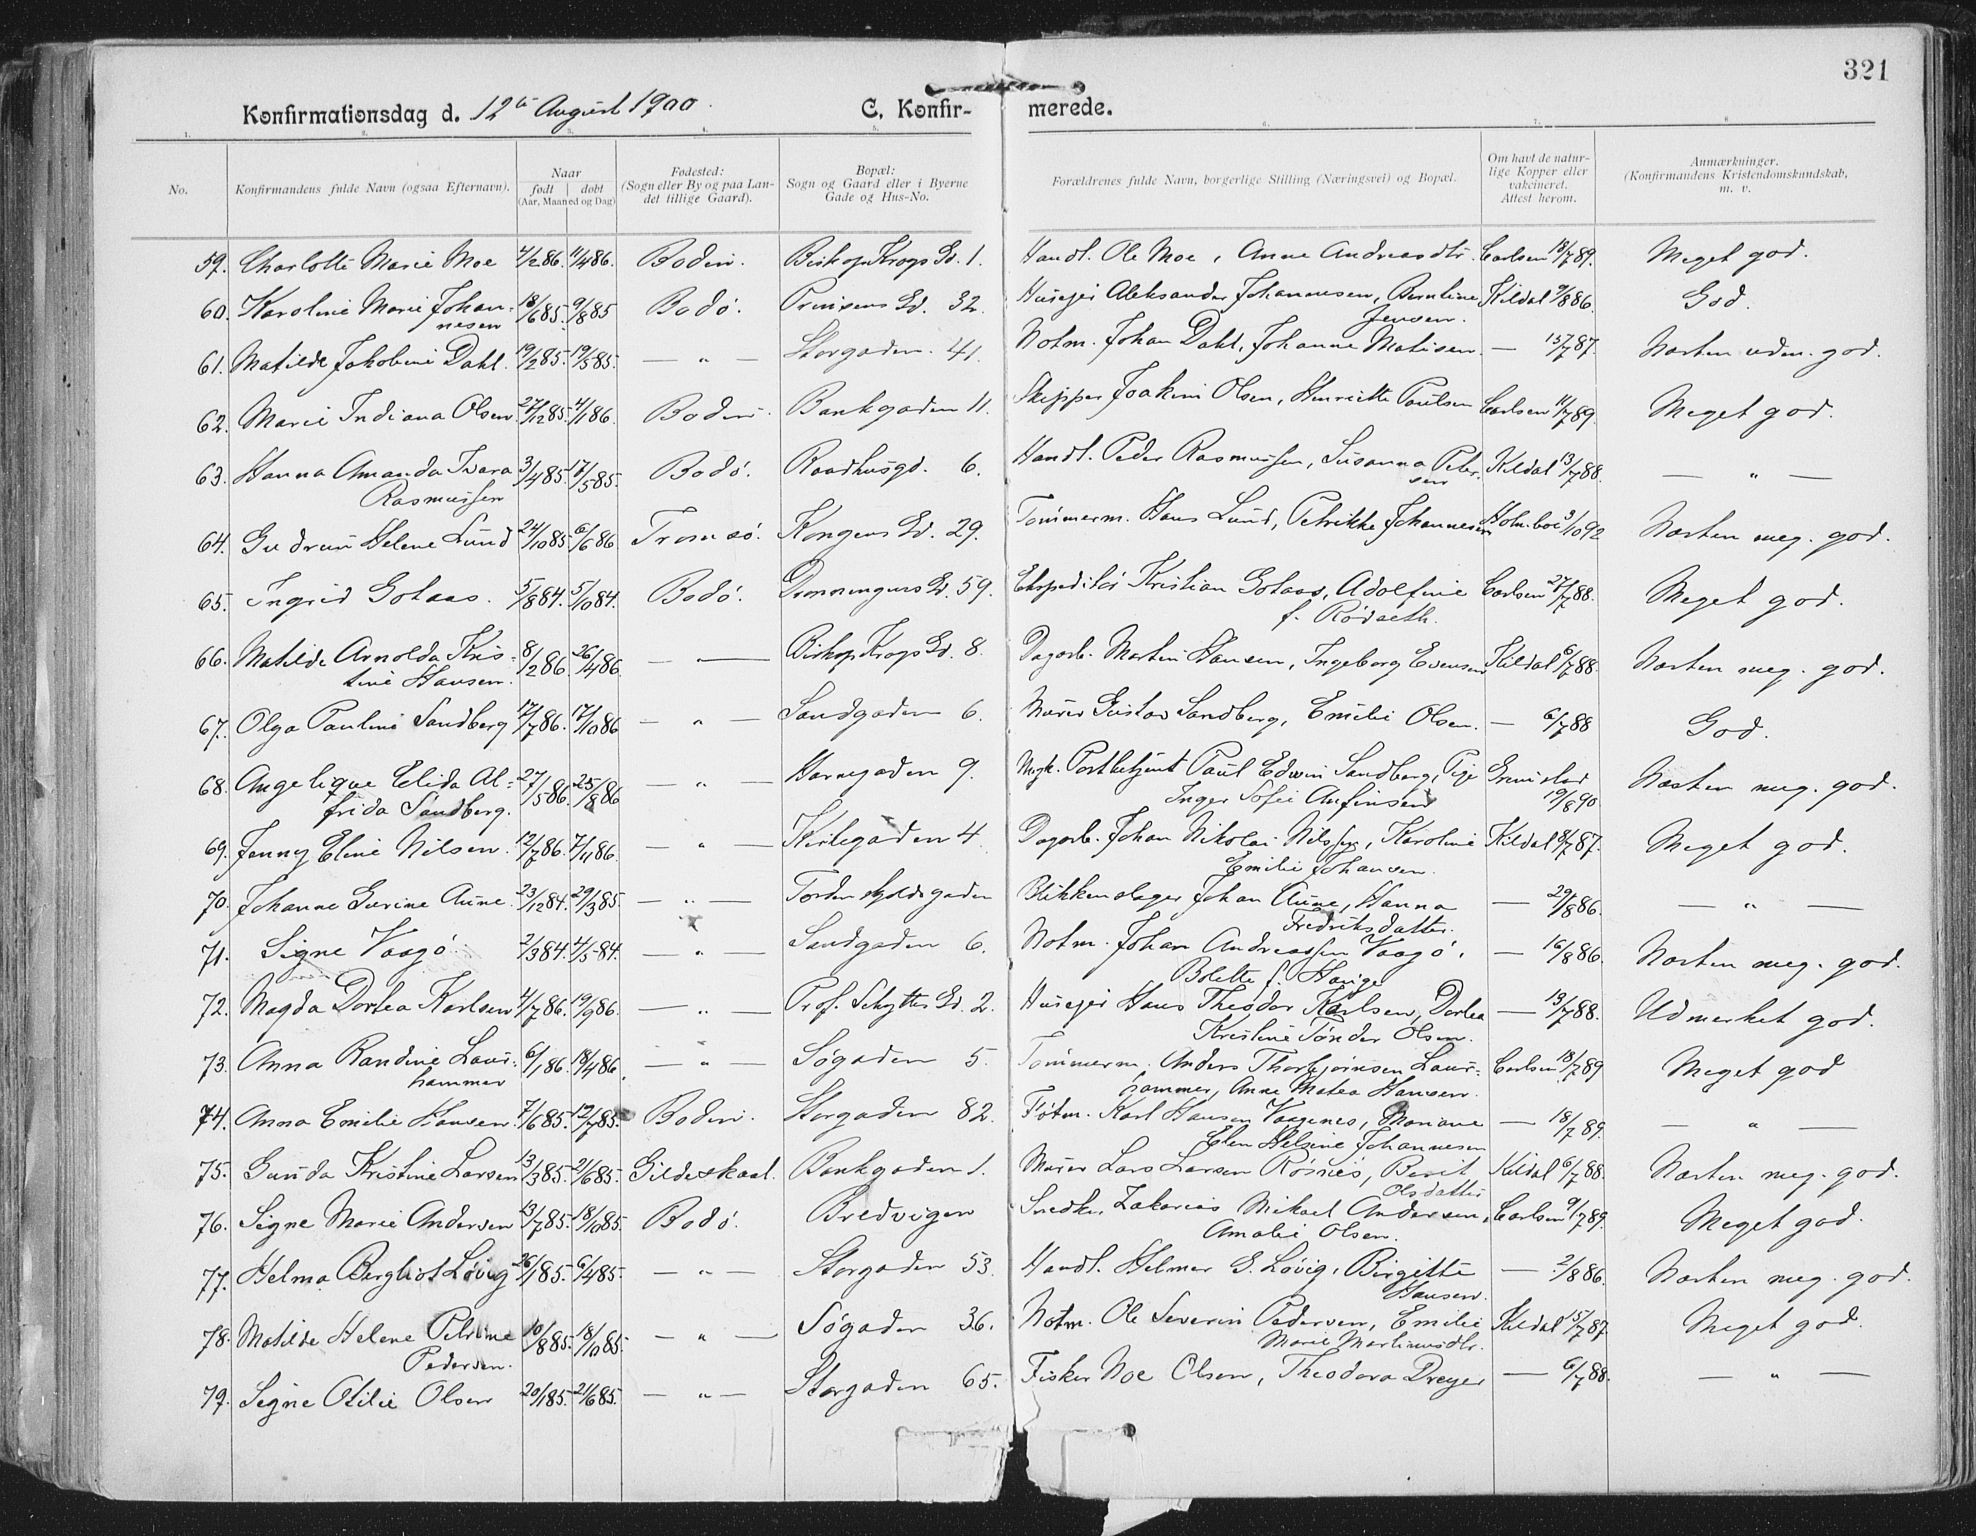 321
Konfirmationsdag d. 12te August 1900. C. Konfirmerede.
1. 2. 3. 4. 5. 6. 7. 8.
No. Konfirmandens fulde Navn (ogsaa Efternavn). Naar født | døbt (Aar, Maaned og Dag) Fødested: (Sogn eller By og paa Landet tillige Gaard). Bopæl: Sogn og Gaard eller i Byerne Gade og Hus-No. Forældrenes fulde Navn, borgerlige Stilling (Næringsvei) og Bopæl. Om havt de naturlige Kopper eller vakcineret. Attest herom. Anmærkninger. (Konfirmandens Kristendomskundskab, m. v.
59. Charlotte Marie Moe 4/2 86. 11/4 86. Bodin. Biskop Krogs Gd. 1. Handl. Ole Moe, Anne Andreasdtr. Carlsen 18/7 89. Meget god.
60. Karoline Marie Johannesen 18/6 85. 9/8 85 Bodø. Prinsens Gd. 32. Huseier Aleksander Johannesen, Berntine Jensen. Kildal 9/8 86. God.
61. Matilde Jakobine Dahl. 19/2 85. 19/5 85. — " — Storgaden. 41. Notm. Johan Dahl, Johanne Matisen. — 15/7 87. Næsten uden. god.
62. Marie Indiana Olsen 27/12 85. 4/1 86. Bodin. Bankgaden 11. Skipper Joakim Olsen, Henriette Paulsen Carlsen 11/7 89. Meget god.
63. Hanna Amanda Tvara Rasmussen 3/4 85. 17/5 85. Bodø. Raadhusgd. 6. Handl. Peder Rasmussen, Susanna Petersen Kildal 13/7 88. — " —
64. Gudrun Helene Lund 24/10 85. 6/6 86 Tromsø. Kongens Gd. 29. Tømmerm. Hans Lund, Petrikke Johannesen Holmboe 3/10 92 Næsten meg. god.
65. Ingrid Gotaas. 5/8 84. 5/10 84. Bodø. Dronningens Gd. 59. Ekspeditør Kristian Gotaas, Adolfine f. Rødseth. Carlsen 27/7 88. Meget god.
66. Matilde Arnolda Kristine Hansen. 8/2 86. 26/4 86. — — Biskop Krogs Gd. 8. Dagarb. Martin Hansen, Ingeborg Evensen Kildal 6/7 88. Næsten meg. god.
67. Olga Pauline Sandberg 12/7 86. 17/10 86 — " — Sandgaden 6. Murer Gustav Sandberg, Emilie Olsen. — 6/7 88 God.
68. Angelique Elida Alfrida Sandberg. 27/5 86. 25/8 86 — " — Havnegaden 9. Ungk. Postbetjent Paul Edvin Sandberg, Pige Inger Sofie Anfinsen Grimstad 19/8 90. Næsten meg. god.
69. Jenny Eline Nilsen. 12/7 86. 7/11 86. — " — Kirkegaden 4. Dagarb. Johan Nikolai Nilssen, Karoline Emilie Johansen. Kildal 8/7 87. Meget god.
70. Johanne Gurine Aune. 23/12 84. 29/3 85. — " — Tordenskjoldsgaden Blikkenslager Johan Aune, Hanna Fredriksdatter. — 29/8 86. — " —
71. Signe Vaagø. 2/3 84. 4/5 84. — " — Sandgaden 6. Notm. Johan Andreassen Vaagø, Bolette f. Havige — 16/8 86. Næsten meg. god.
72. Magda Dortea Karlsen 4/7 86. 19/9 86. — " — Prof. Schyttes Gd. 2. Huseier Hans Theodor Karlsen, Dortea Kristine Tønder Olsen. — 13/7 88. Udmerket god.
73. Anna Randine Laurhammer 6/1 86. 18/4 86. — " — Søgaden 5. Tømmerm. Anders Thorbjørnsen Laurhammer, Anne Matea Hansen. Carlsen 18/7 89 Meget god
74. Anna Emilie Hansen. 7/6 85. 12/7 85. Bodin. Storgaden 82. Føtm. Karl Hansen Vaagenes, Mariane Elen Helsine Johannesen — 18/7 89. — " —
75. Gunda Kristine Larsen 13/3 85. 21/6 85. Gildeskaal. Bankgaden 1. Murer Lars Larsen Rosnes, Berit Olsdatter Kildal 6/7 88. Næsten meg. god.
76. Signe Marie Andersen 13/7 85. 18/10 85. Bodø. Bredvigen Snedker Zakarias Mikael Andersen, Amalie Olsen. Carlsen 9/7 89. Meget god.
77. Helma Bergliot Løvig 26/1 85. 6/4 85. — " — Storgaden 53. Handl. Helmer G. Løvig, Birgitte Hansen. — 2/8 86. Næsten meg. god.
78. Matilde Helene Petrine Pedersen. 10/8 85. 18/10 85. — " — Søgaden 36. Notm. Ole Severin Pedersen, Emilie Marie Martinusdtr. Kildal 15/7 87. Meget god.
79. Signe Otilie Olsen 20/1 85. 21/6 85. — " — Storgaden 65. Fisker Noe Olsen, Theodora Dreyer — 6/7 88. — " —